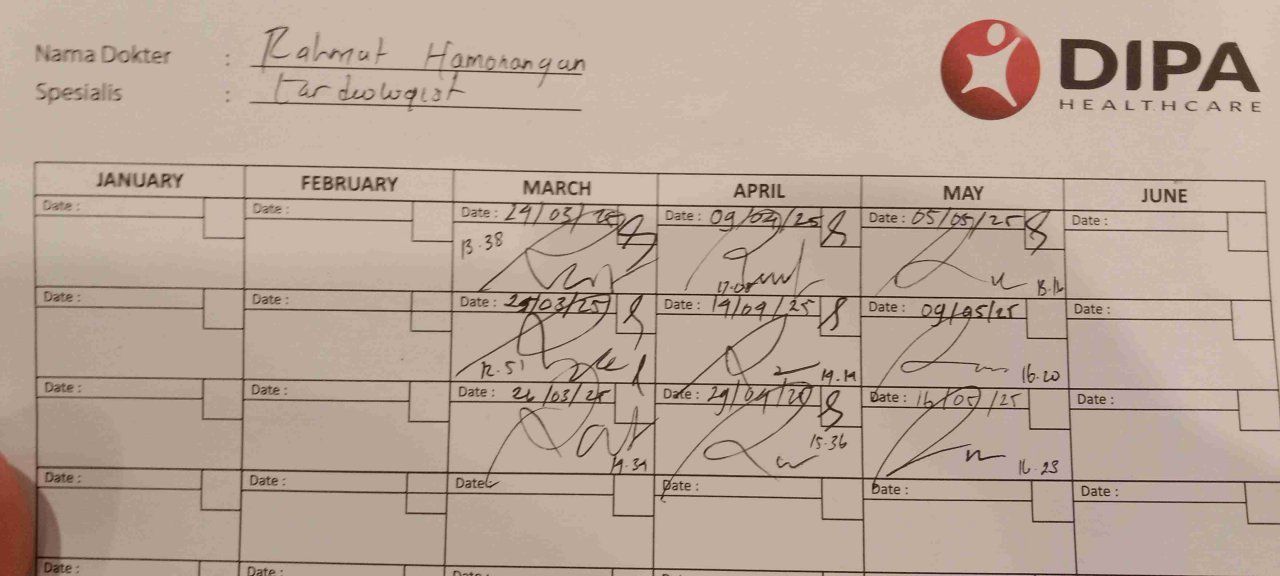 Nama Dokter : Rahmat Hamonangan
Spesialis : Cardiologist
DIPA
HEALTHCARE
JANUARY FEBRUARY MARCH APRIL MAY JUNE
Date : Date : Date : 24/03/25 Date : 09/04/25 Date : 05/05/25 Date :
13.38 17.08 13.16
Date : Date : Date : 25/03/25 Date : 14/04/25 Date : 09/05/25 Date :
12.51 14.14 16.20
Date : Date : Date : 26/03/25 Date : 29/04/25 Date : 16/05/25 Date :
14.34 15.36 16.23
Date : Date : Date : Date : Date : Date :
Date : Date : Date :